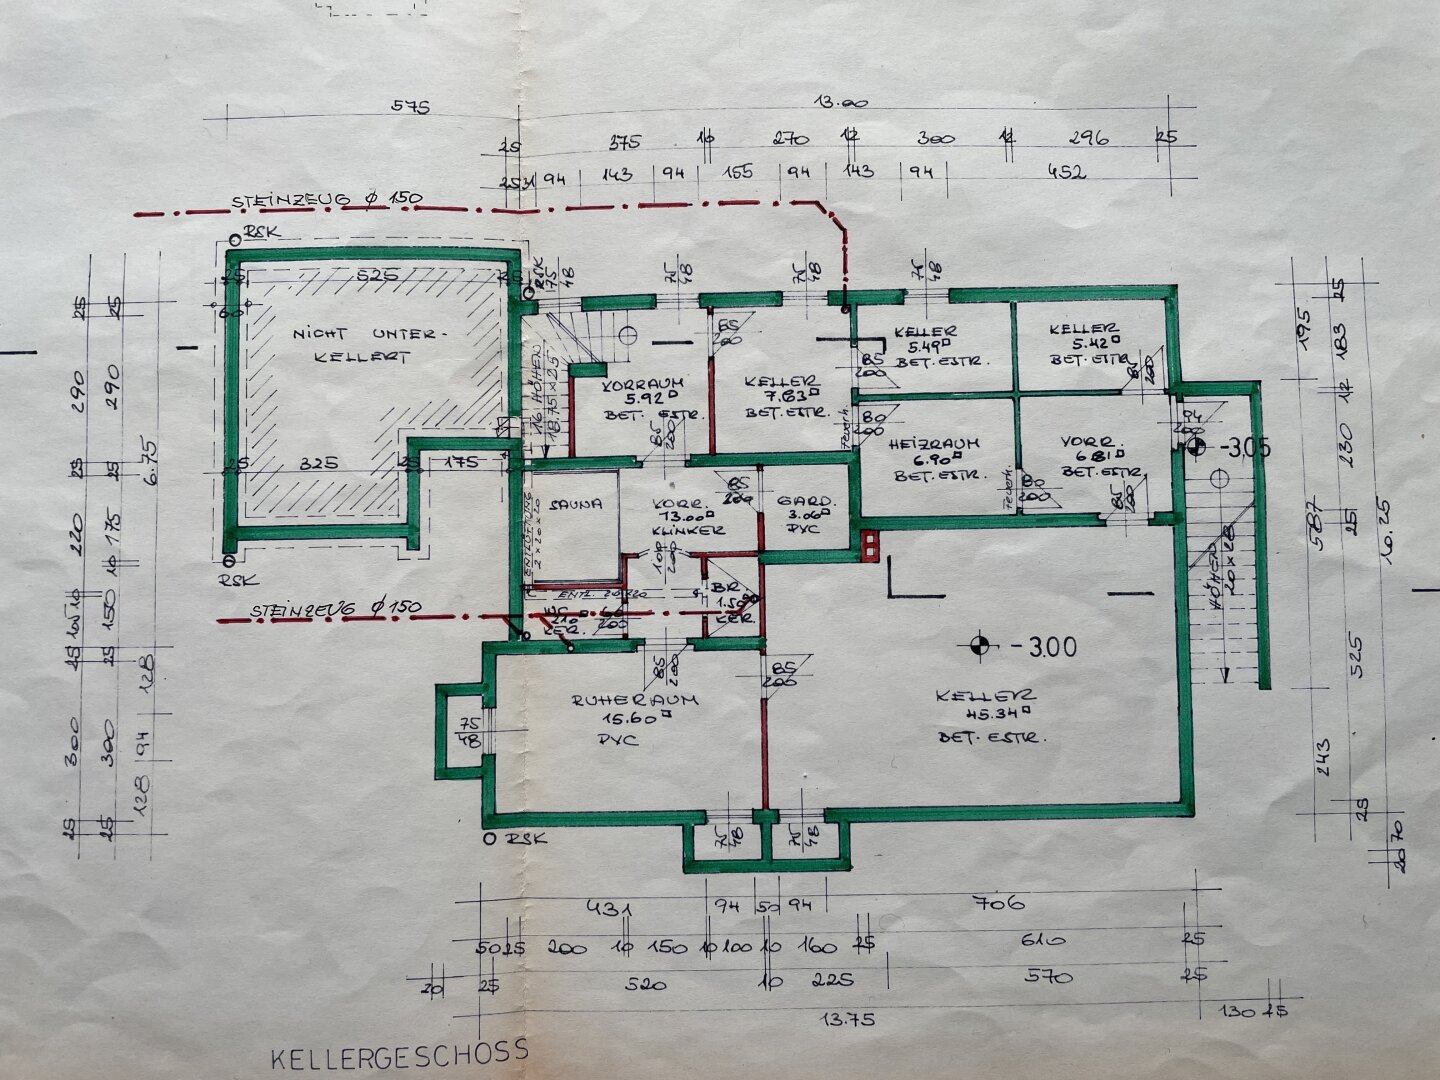 575
13.00
25
375
10
270
12
300
12
296
25
25
31
94
143
94
155
94
143
94
452
STEINZEUG ϕ 150
RSK
RSK
75
48
75
48
75
48
75
48
25
525
25
60
NICHT UNTER-
KELLERT
25
325
25
175
16 HÖHEN
18.75 x 25
VORRAUM
5.92□
BET. ESTR.
85
200
85
200
KELLER
7.83□
BET. ESTR.
Feuerh.
KELLER
5.49□
BET. ESTR.
85
200
KELLER
5.42□
BET. ESTR.
85
200
80
200
HEIZRAUM
6.90□
BET. ESTR.
VORR.
6.81□
BET. ESTR.
94
200
-3.05
Feuerh.
80
200
85
200
SAUNA
ENTLÜFTUNG
2 x 20 x 20
KORR.
13.00□
KLINKER
85
200
GARD.
3.06□
PVC
100
200
ENTL. 20/20
BR.
1.50□
KER.
KER.
60
200
RSK
STEINZEUG ϕ 150
HÖHEN
20 x 28
-3.00
85
200
85
200
RUHERAUM
15.60□
PVC
KELLER
45.34□
BET. ESTR.
75
48
75
48
75
48
RSK
25
290
25
220
10
10
105
25
300
25
25
290
25
175
10
150
25
300
25
6.75
128
94
128
195
587
243
25
183
12
230
25
525
25
10.25
70
20
431
94
50
94
706
50
25
200
10
150
10
100
10
160
25
610
25
20
25
520
10
225
570
25
13.75
130
25
KELLERGESCHOSS